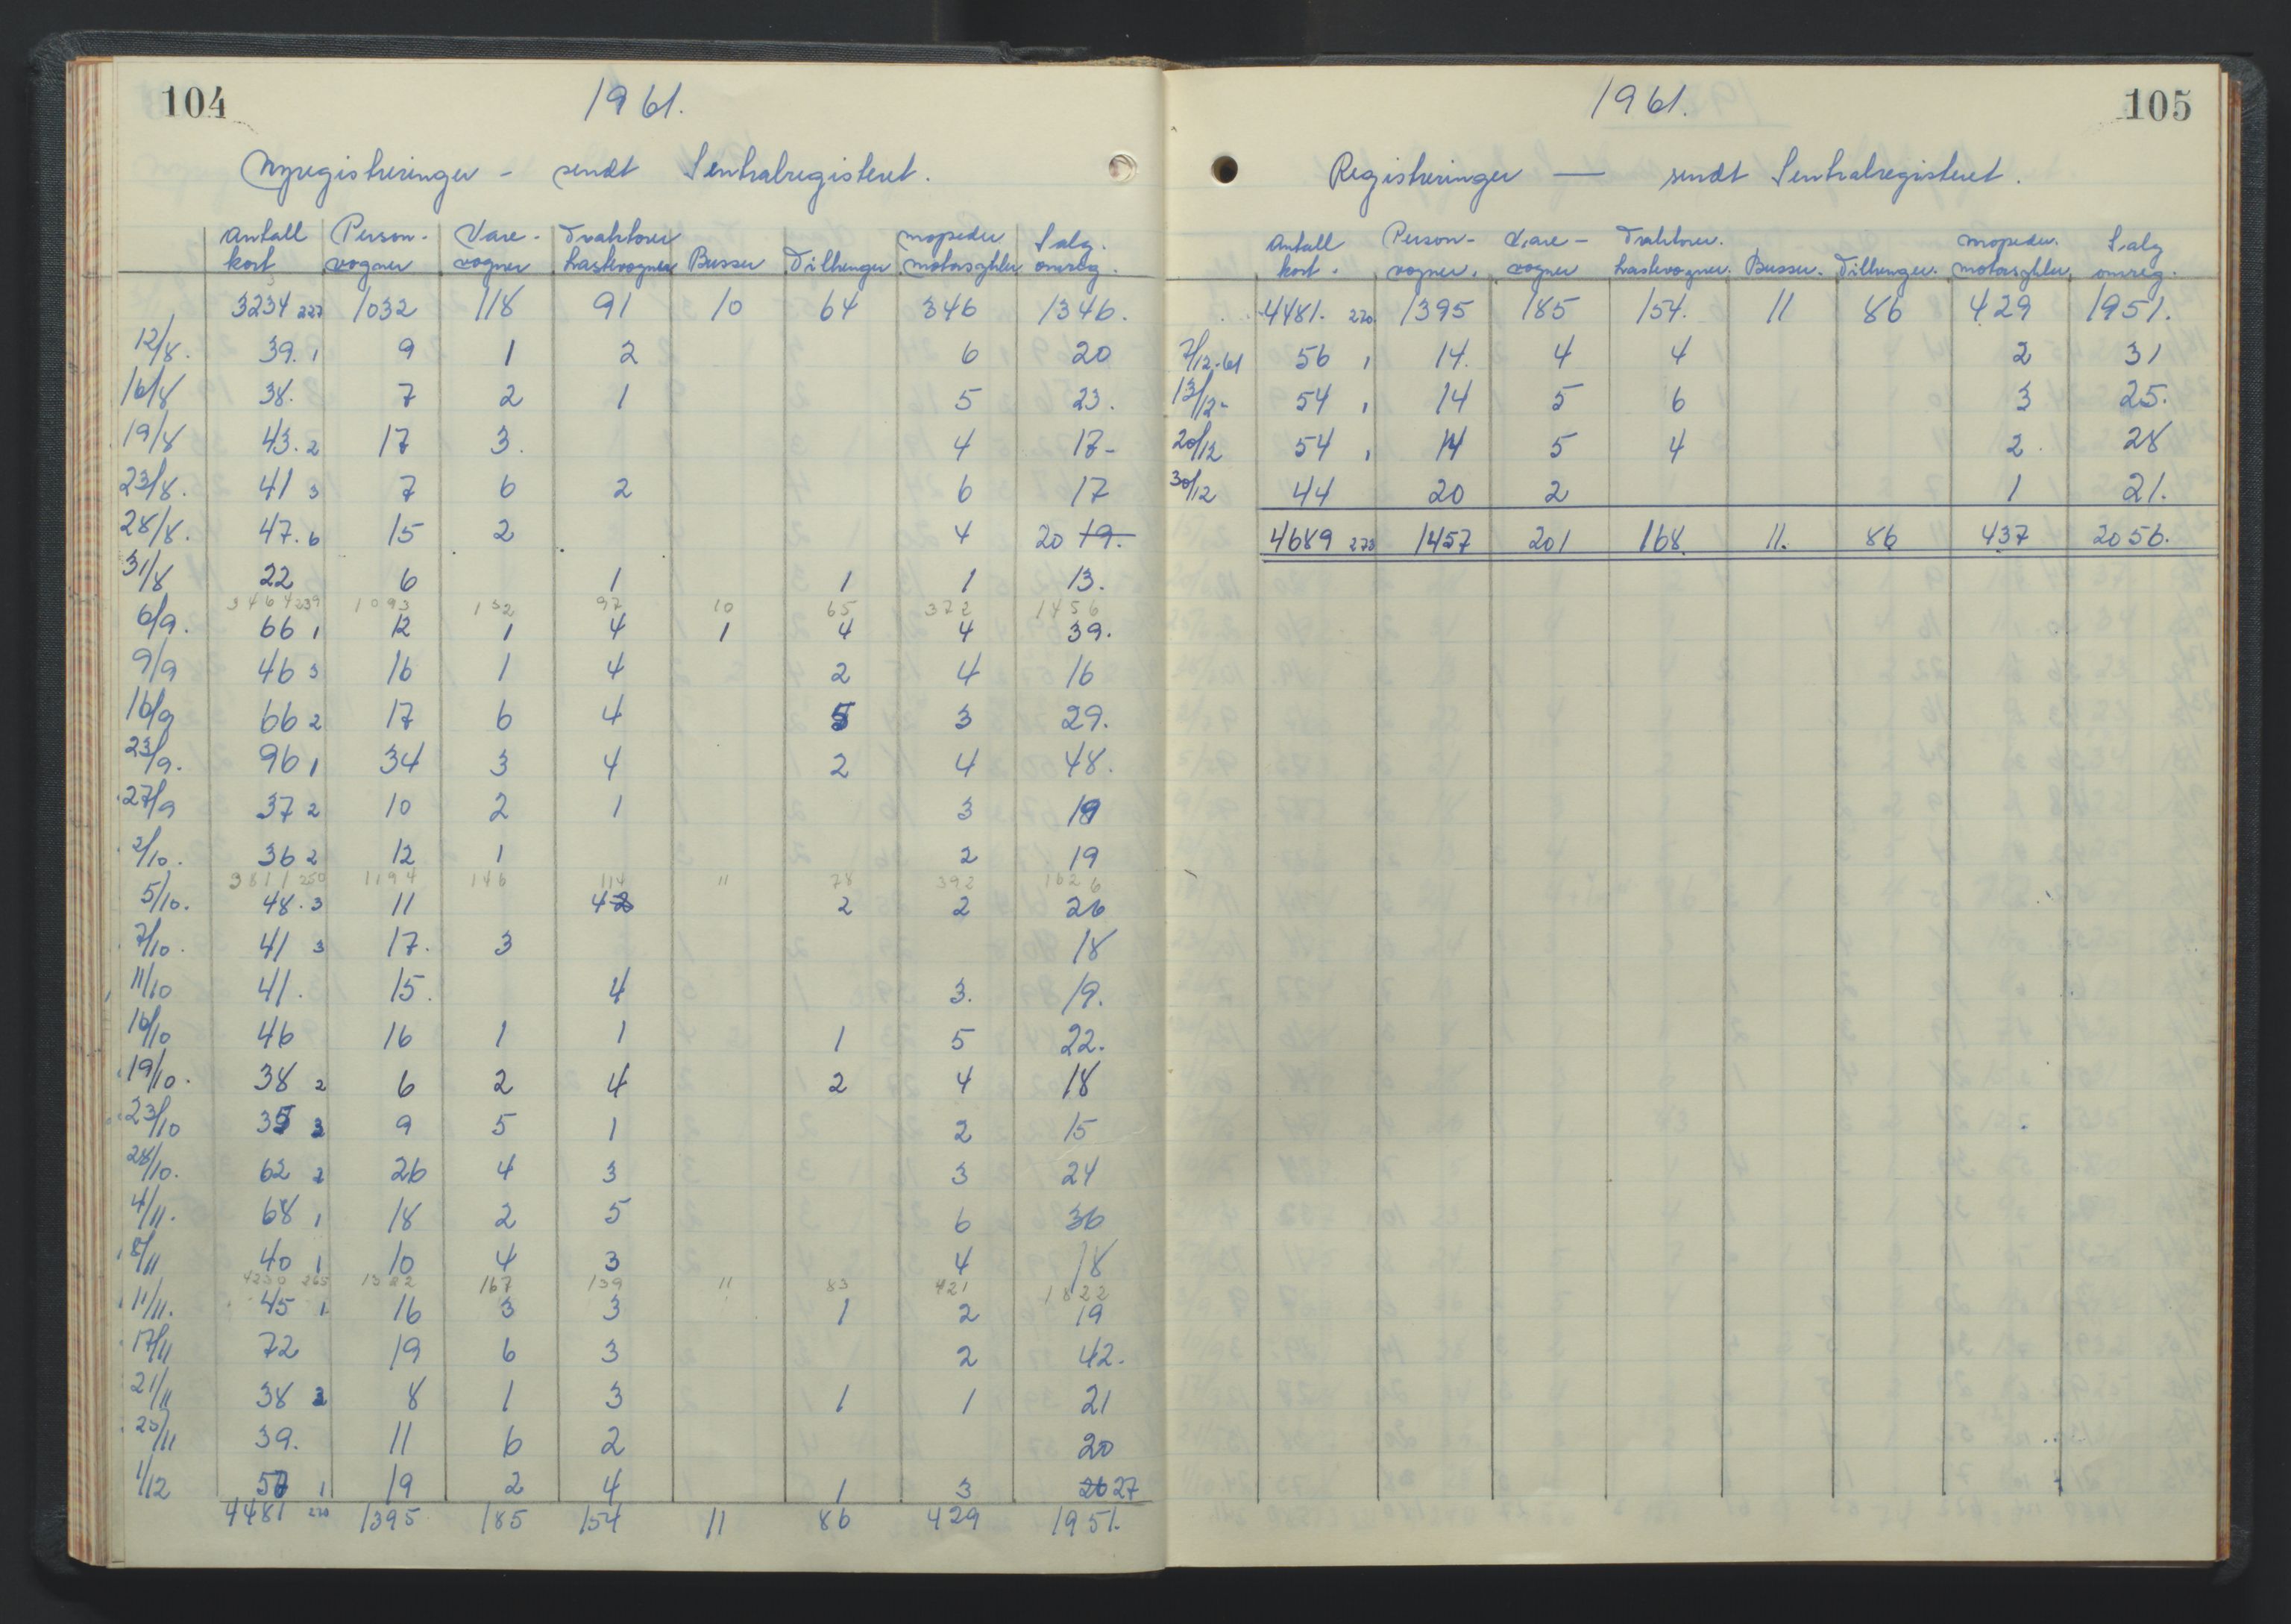 104
1961.
Nyregistreringer - sendt Sentralregisteret.
Antall kort Person-vogner Vare-vogner Traktorer Lastevogner Busser Tilhenger mopeder motorsykler Salg. omreg.
3234 227 1032 118 91 10 64 346 1346.
12/8. 39. 1 9 1 2 6 20
16/8 38. 7 2 1 5 23.
19/8 43. 2 17 3. 4 17-
23/8. 41 3 7 6 2 6 17
28/8. 47. 6 15 2 4 20 19.
31/8 22 6 1 1 1 13.
3464 239 1093 132 97 10 65 372 1456
6/9. 66 1 12 1 4 1 4 4 39.
9/9 46 3 16 1 4 2 4 16
16/9 66 2 17 6 4 5 3 29.
23/9. 96 1 34 3 4 2 4 48.
27/9 37 2 10 2 1 3 19
2/10. 36 2 12 1 2 19
3811 250 1194 146 114 11 78 392 1626
5/10. 48. 3 11 4 2 2 2 26
7/10. 41 3 17. 3 18
11/10 41. 15. 4 3. 19.
16/10 46 16 1 1 1 5 22.
19/10. 38 2 6 2 4 2 4 18
23/10 35 3 9 5 1 2 15
28/10. 62 2 26 4 3 3 24
4/11. 68 1 18 2 5 6 36
8/11 40 1 10 4 3 4 18
4230 265 1322 167 139 11 83 421 1822
11/11. 45 1 16 3 3 1 2 19
17/11 72 19 6 3 2 42.
21/11 38 2 8 1 3 1 1 21
25/11 39. 11 6 2 20
1/12 57 1 19 2 4 1 3 26 27
4481 270 1395 185 154 11 86 429 1951.
105
1961.
Registreringer — sendt Sentralregisteret.
Antall kort. Person-vogner. Vare-vogner Traktorer. Lastevogner. Busser. Tilhenger. mopeder. motorsykler. Salg omreg.
4481. 270 1395 185 154. 11 86 429 1951.
7/12-61 56 1 14. 4 4 2 31
13/12- 54 1 14 5 6 3 25.
20/12 54 1 14 5 4 2. 28
30/12 44 20 2 1 21.
4689 273 1457 201 168. 11. 86 437 2056.